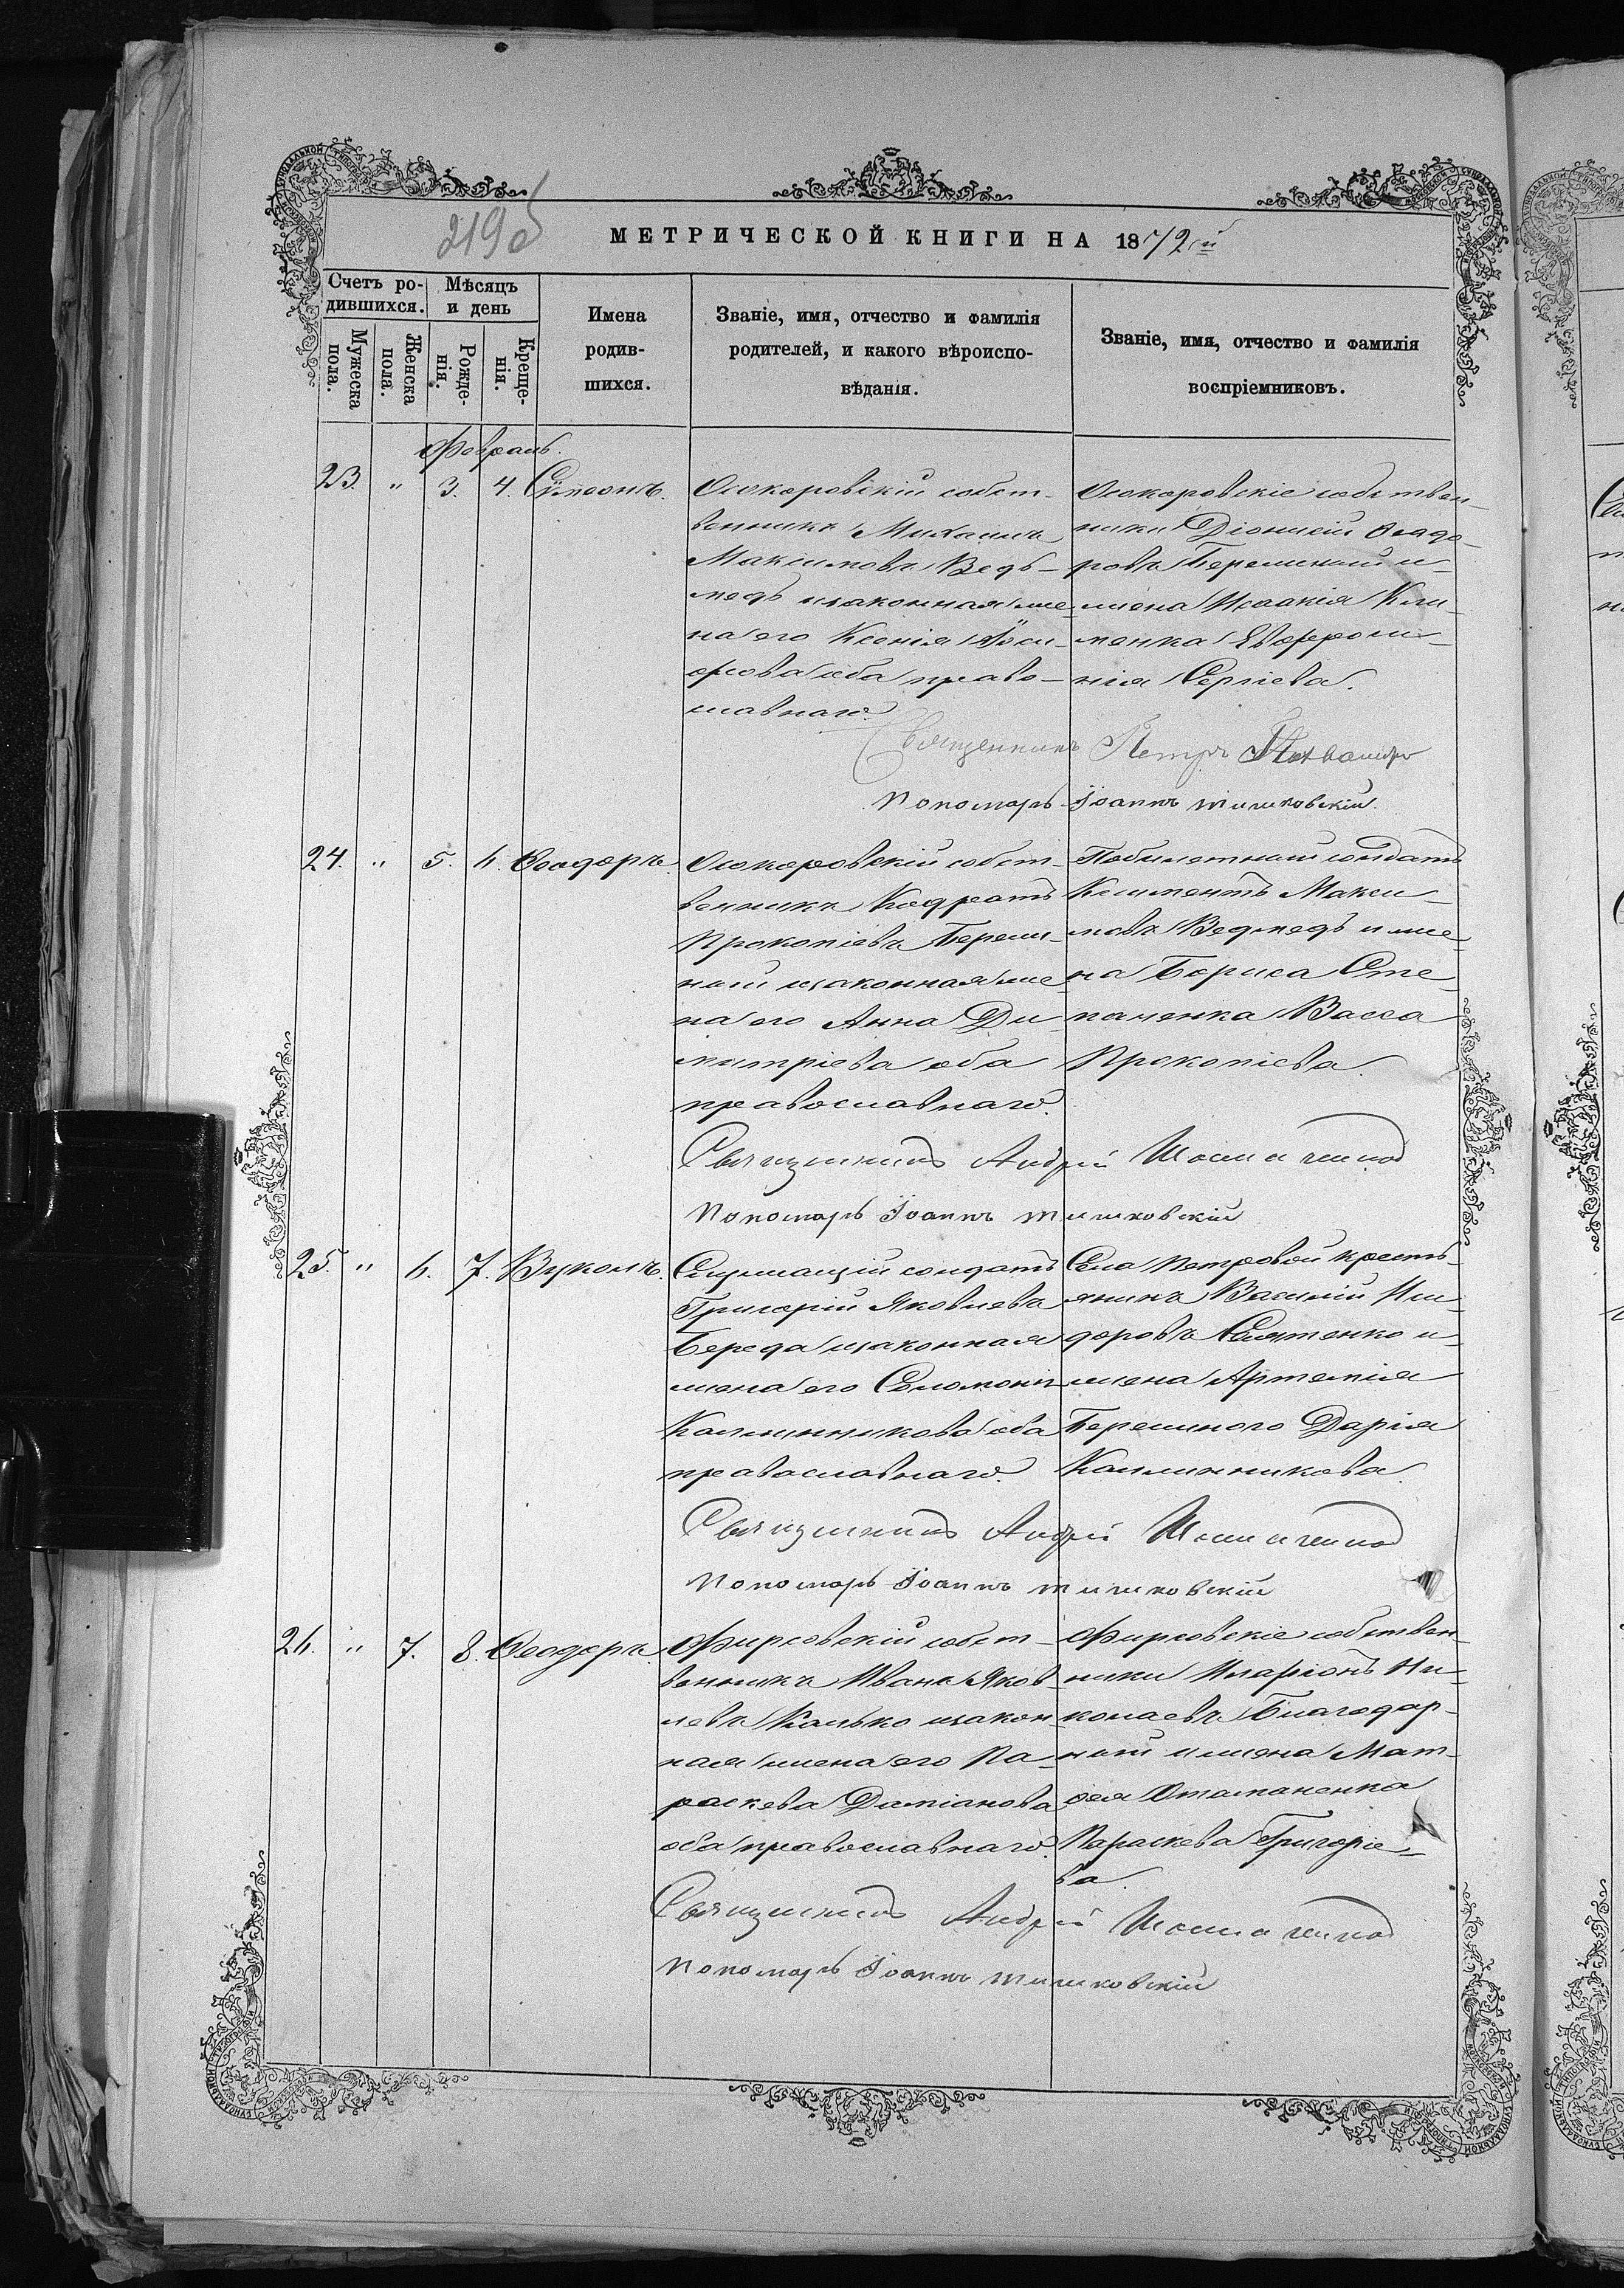 219 об
МЕТРИЧЕСКОЙ КНИГИ НА 1872й
Счетъ ро-
дившихся.
Мѣсяцъ
и день
Мужеска
пола.
Женска
пола.
Рожде-
нія.
Креще-
нія.
Имена
родив-
шихся.
Званіе, имя, отчество и фамилія
родителей, и какого вѣроиспо-
вѣданія.
Званіе, имя, отчество и фамилія
воспріемниковъ.
Февраль.
23. " 3. 4. Сѵмеонъ.
Осокоровскій собст-
венникъ Михаилъ
Максимовъ Вед-
медь изаконная же-
на его Ксенія
оба право-
славнаго.
Осокоровскіе собствен-
ники Діонисій Ѳеодо-
ровъ Бережный и
жена Исаакія Кли-
менка Евфроси-
нія Сергіева.
Священникъ Петръ
Пономарь Іоаннъ Тишковскій
24. " 5. 6. Ѳеодоръ.
Осокоровскій собст-
венникъ Кодратъ
Прокопіевъ Береж-
ный изаконная же-
на его Анна Ди-
митріева оба
православнаго.
Побилетный солдатъ
Климентъ Макси-
мовъ Ведмедь и же-
на Бориса Сте-
паненка Васса
Прокопіева.
Священникъ Андрей
Пономарь Іоаннъ Тишковскій
25. " 6. 7. Вуколъ.
Служащій солдатъ
Григорій Яковлевъ
Береда изаконная
жена его Соломонія
Калинникова оба
православнаго.
Села Петровой кресть-
янинъ Василій Иси-
доровъ и
жена Артемія
Бережного Дарія
Калинникова.
Священникъ Андрей
Пономарь Іоаннъ Тишковскій
26. " 7. 8. Ѳеодоръ.
Фирсовскій собст-
венникъ Иванъ Яков-
левъ Калько изакон-
ная жена его Па-
раскева Даміанова
оба православнаго.
Фирсовскіе собствен-
ники Иларіонъ Ни-
колаевъ Благодар-
ный и жена Мат-
ѳея Отаманенка
Параскева Григоріе-
ва.
Священникъ Андрей
Пономарь Іоаннъ Тишковскій